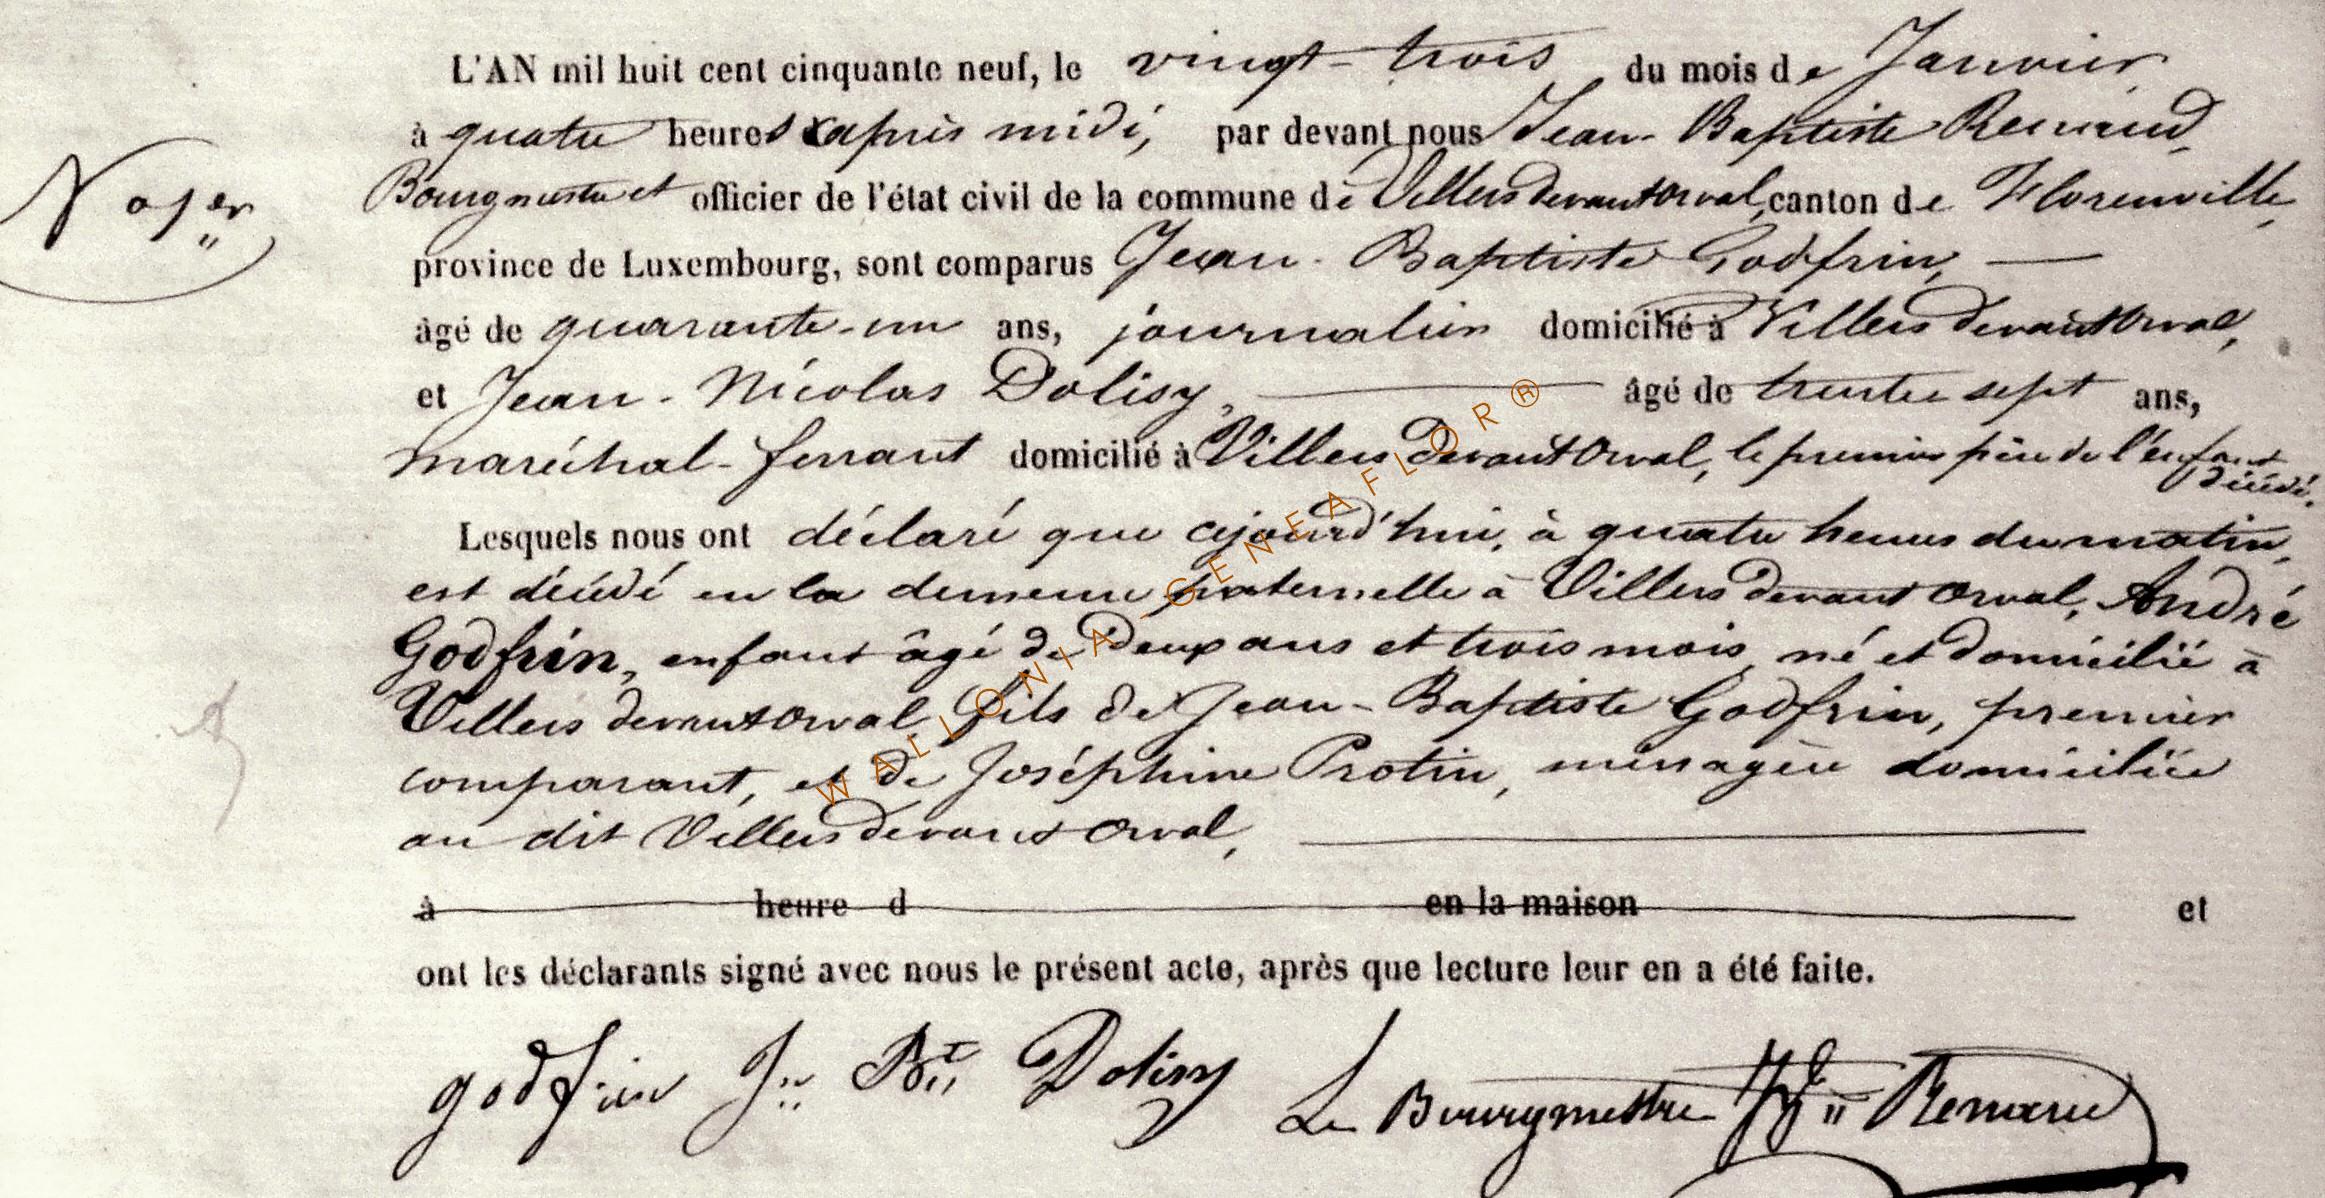 L'AN mil huit cent cinquante neuf, le vingt-trois du mois de Janvier
à quatre heures après midi, par devant nous Jean-Baptiste Renaud,
N° 1er
Bourgmestre et officier de l'état civil de la commune de Villers devant Orval, canton de Florenville,
province de Luxembourg, sont comparus Jean-Baptiste Godfrin,
âgé de quarante-un ans, journalier domicilié à Villers devant Orval,
et Jean-Nicolas Dolisy, âgé de trente sept ans,
maréchal-ferrant domicilié à Villers devant Orval, le premier père de l'enfant
décédé.
Lesquels nous ont déclaré que cejourd'hui, à quatre heures du matin,
est décédé en la demeure paternelle à Villers devant Orval, André
Godfrin, enfant âgé de deux ans et trois mois, né et domicilié à
Villers devant Orval, fils de Jean-Baptiste Godfrin, premier
comparant, et de Joséphine Protin, ménagère domiciliée
au dit Villers devant Orval,
à heure d en la maison et
ont les déclarants signé avec nous le présent acte, après que lecture leur en a été faite.
godfrin Jn Bte Dolisy Le Bourgmestre
WALLONIA-GENEAFLOR®